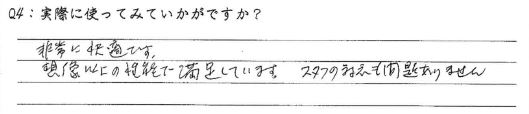 Q4：実際に使ってみていかがですか？
非常に快適です。
想像以上の性能で満足しています。スタッフの対応も問題ありません